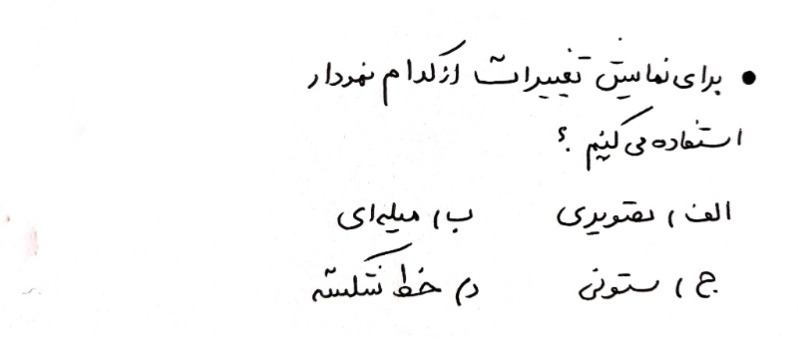 • برای نمایش تغییرات از کدام نمودار
استفاده می کنیم ؟
الف) تصویری ب) میله ای
ج) ستونی د) خط شکسته